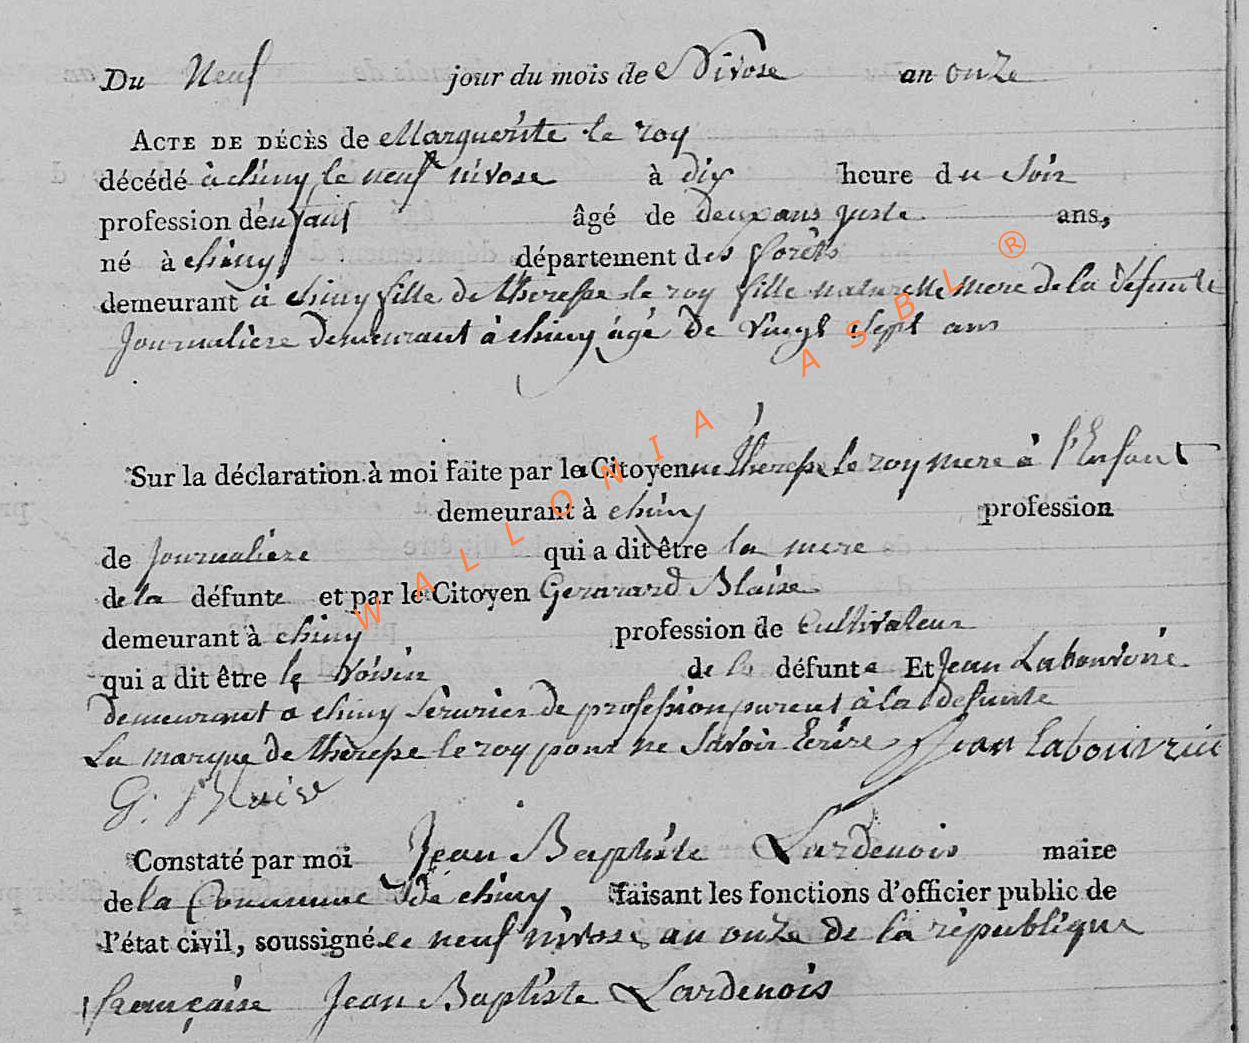 Du Neuf jour du mois de Nivose an onze
ACTE DE DÉCÈS de Marguerite le roy
décédé à chiny le neuf nivose à dix heure du Soir
profession d'enfant âgé de deux ans juste ans,
né à chiny département des forêts
demeurant à chiny fille de theresse le roy fille naturelle mere de la défunte
Journalière demeurant à chiny âgé de vingt sept ans
Sur la déclaration à moi faite par la Citoyenne theresse le roy mere à l'Enfant
demeurant à chiny profession
de Journaliere qui a dit être la mere
de la défunte et par le Citoyen Gerarard Blaise
demeurant à chiny profession de Cultivateur
qui a dit être le voisin de la défunte Et Jean Labouvrie
demeurant a chiny serurier de profession parent à la defunte
La marque de theresse le roy pour ne Savoir Ecrire Jean Labouvrie
G. Blaise
Constaté par moi Jean Baptiste Lardenois maire
de la Commune de chiny faisant les fonctions d'officier public de
l'état civil, soussigné le neuf nivose an onze de la république
française Jean Baptiste Lardenois
WALLONIA ASBL ®